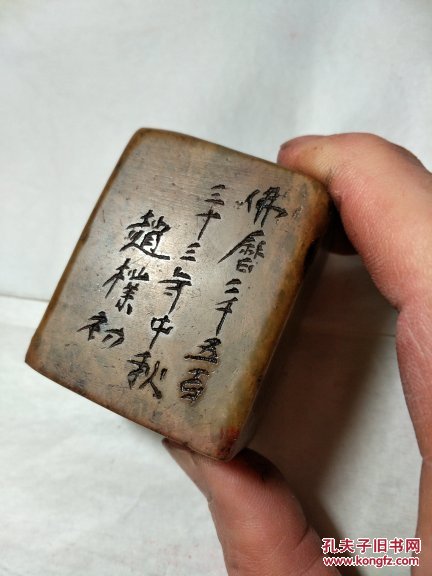 佛曆二千五百
三十三年中秋
趙樸初
孔夫子旧书网
www.kongfz.com